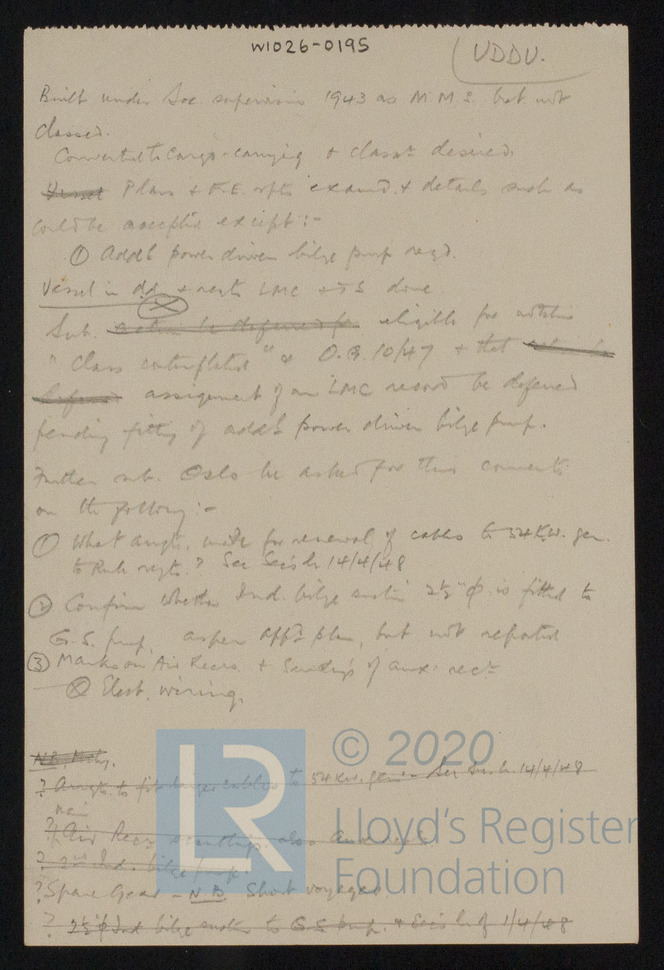 W1026-0195
UDDV.
Built under Soc. supervision 1943 as M.M.S. but not
classed.
Converted to cargo-carrying & classn desired.
Vessel Plans + F.E. rpts exam'd & details such as
could be accepted except:-
① Addl power driven bilge pump reqd.
Vessel in dd + reqts LMC + TS done
Sub. eligible for notation
"Class contemplated" O.S. 10/47 + that
assignment of an LMC record be deferred
pending fitting of addl power driven bilge pump.
Further sub. Oslo be asked for their comments
on the following:-
① What arrgts. made for renewal of cables to 54 K.W. gen.
to Rule reqts.? See Sec's lr 14/4/48
② Confirm whether Ind. bilge suction 2½"φ is fitted to
G.S. pump, as per appd plan, but not reported
③ Marks on Air Recrs. + Scantlgs of aux: recr
⊗ Elect. wiring.
N.B. Mchy.
? Arrgts to fit larger cables to 54 Kw. gen - See Sec's lr 14/4/48
main
? Air Recs scantlings also aux recr
? 2nd Ind. bilge pump.
? Spare Gear - N.B. Short voyages.
? 2½"φ Ind bilge suction to G.S. pump. + Sec's lr of 1/4/48
LR
© 2020
Lloyd's Register
Foundation